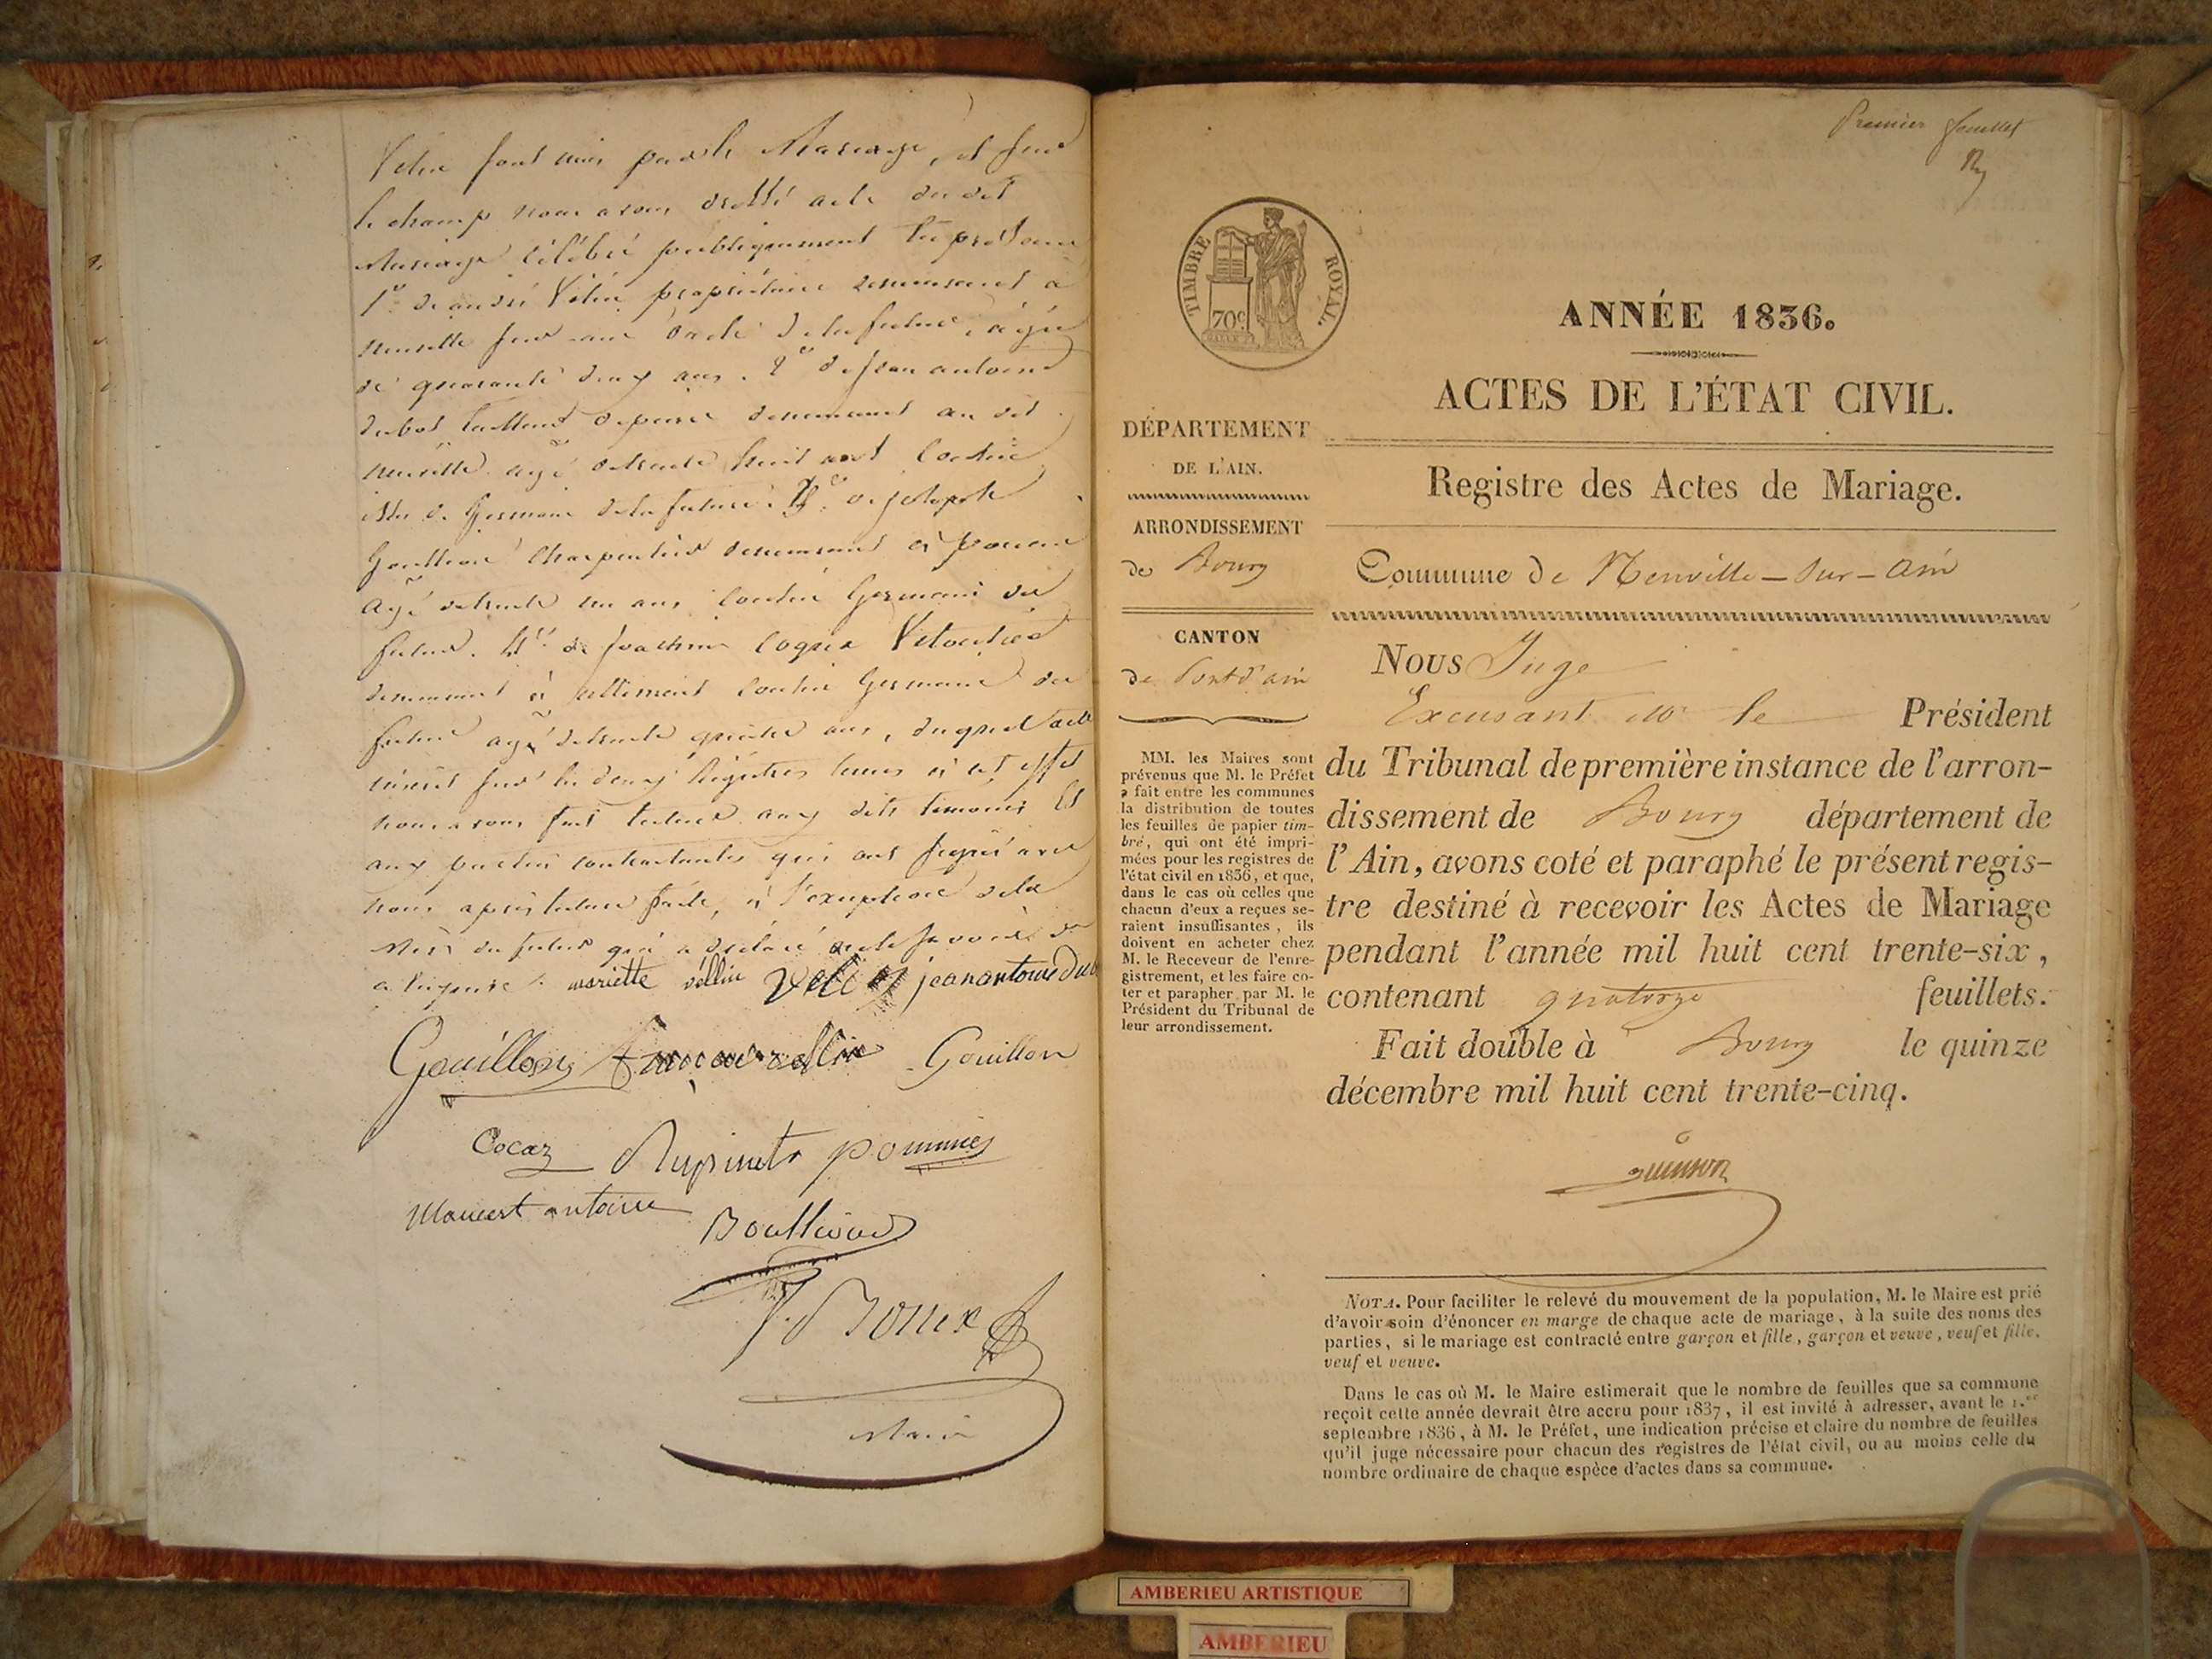 Vélin sont unis par le Mariage, et sur
le champ nous avons dressé acte du dit
Mariage célébré publiquement en présence
1° de andré Vélin propriétaire demeurant à
neuville sur ain oncle de la future, agé
de quarante deux ans. 2° de jean antoine
dubos tailleur de pierre demeurant au dit
neuville agé de trente huit ans Cousin
issu de Germain de la future. 3° de joseph
Gouillon Charpentier demeurant à
agé de trente un ans Cousin Germain du
futur. 4° de joachim Cogniex
demeurant à Cousin Germain du
futur agé de trente quatre ans, duquel acte
inscrit sur les deux Régistres tenus à cet effet
nous avons fait lecture aux dits témoins Et
aux parties contractantes qui ont signé avec
nous après lecture faite, à l'exception de la
Mère du futur qui a déclaré ne le savoir de
ce requise. mariette vellin vélin jean antoine Dub
Gouillon françoise vellin Gouillon
Cocaz
antoine
Maire
Premier feuillet
TIMBRE ROYAL.
70c
ANNÉE 1836.
ACTES DE L'ÉTAT CIVIL.
Registre des Actes de Mariage.
Commune de Neuville-sur-ain
DÉPARTEMENT
DE L'AIN.
ARRONDISSEMENT
de Bourg
CANTON
de Pont d'ain
MM. les Maires sont
prévenus que M. le Préfet
a fait entre les communes
la distribution de toutes
les feuilles de papier tim-
bré, qui ont été impri-
mées pour les registres de
l'état civil en 1836, et que,
dans le cas où celles que
chacun d'eux a reçues se-
raient insuffisantes, ils
doivent en acheter chez
M. le Receveur de l'enre-
gistrement, et les faire co-
ter et parapher par M. le
Président du Tribunal de
leur arrondissement.
Nous Juge
Excusant Mr le Président
du Tribunal de première instance de l'arron-
dissement de Bourg département de
l'Ain, avons coté et paraphé le présent regis-
tre destiné à recevoir les Actes de Mariage
pendant l'année mil huit cent trente-six,
contenant quatorze feuillets.
Fait double à Bourg le quinze
décembre mil huit cent trente-cinq.
NOTA. Pour faciliter le relevé du mouvement de la population, M. le Maire est prié
d'avoir soin d'énoncer en marge de chaque acte de mariage, à la suite des noms des
parties, si le mariage est contracté entre garçon et fille, garçon et veuve, veuf et fille,
veuf et veuve.
Dans le cas où M. le Maire estimerait que le nombre de feuilles que sa commune
reçoit cette année devrait être accru pour 1837, il est invité à adresser, avant le 1.er
septembre 1836, à M. le Préfet, une indication précise et claire du nombre de feuilles
qu'il juge nécessaire pour chacun des registres de l'état civil, ou au moins celle du
nombre ordinaire de chaque espèce d'actes dans sa commune.
AMBERIEU ARTISTIQUE
AMBERIEU